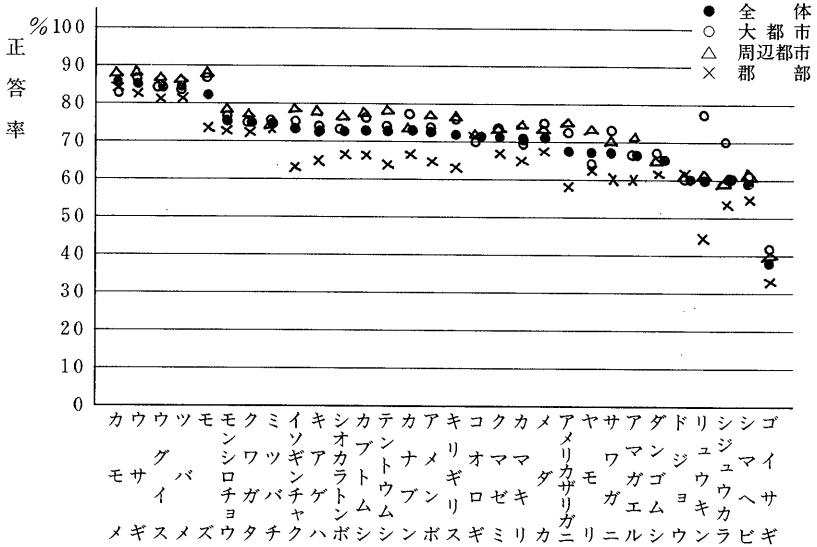 %
正答率
100
90
80
70
60
50
40
30
20
10
0
● 全体
○ 大都市
△ 周辺都市
× 郡部
カモメ
ウサギ
ウグイス
ツバメ
モズ
モンシロチョウ
クワガタ
ミツバチ
イソギンチャク
キアゲハ
シオカラトンボ
カブトムシ
テントウムシ
カナブン
アメンボ
キリギリス
コオロギ
クマゼミ
カマキリ
メダカ
アメリカザリガニ
ヤモリ
サワガニ
アマガエル
ダンゴムシ
ドジョウ
リュウキン
シジュウカラ
シマヘビ
ゴイサギ